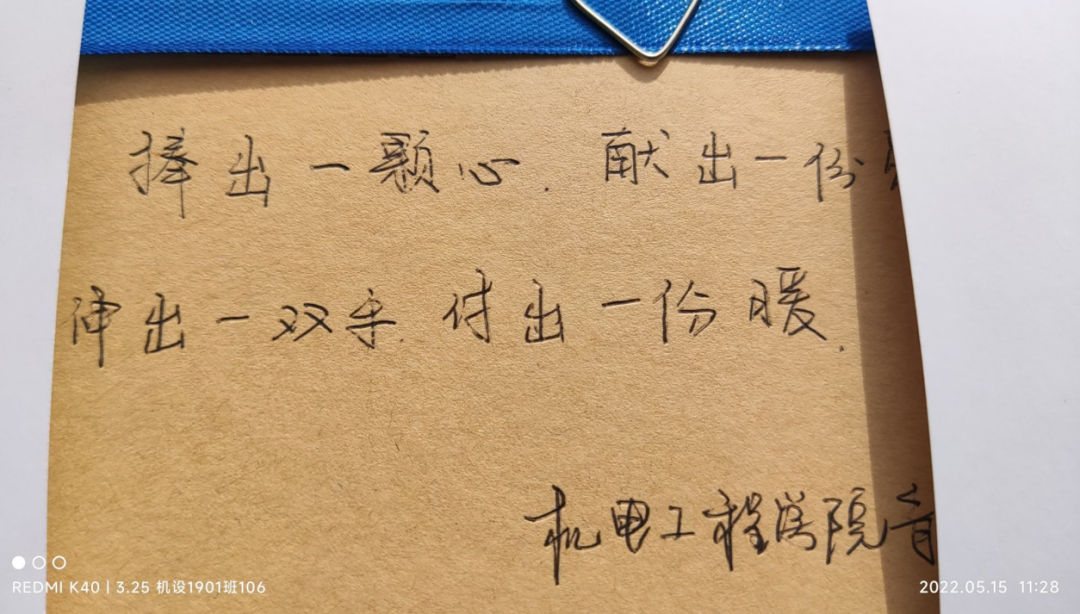 捧出一颗心.献出一份
伸出一双手.付出一份暖.
机电工程学院
REDMI K40 | 3.25 机设1901班106
2022.05.15 11:28